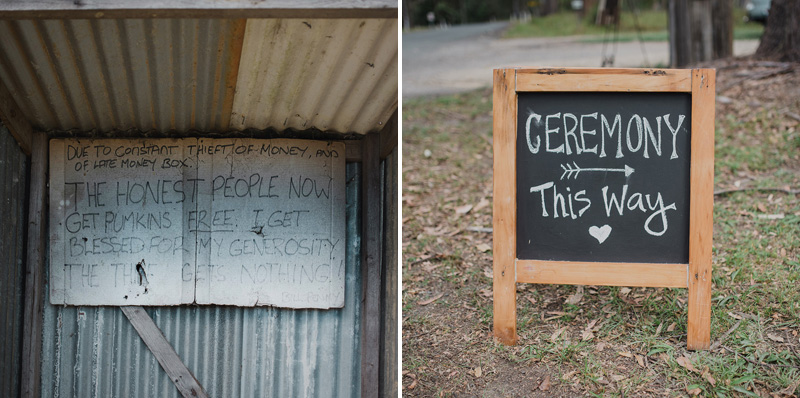 DUE TO CONSTANT THEFT OF MONEY, AND
OF LATE MONEY BOX.
THE HONEST PEOPLE NOW
GET PUMKINS FREE. I GET
BLESSED FOR MY GENEROSITY
THE THIEF GETS NOTHING!
CEREMONY
This Way